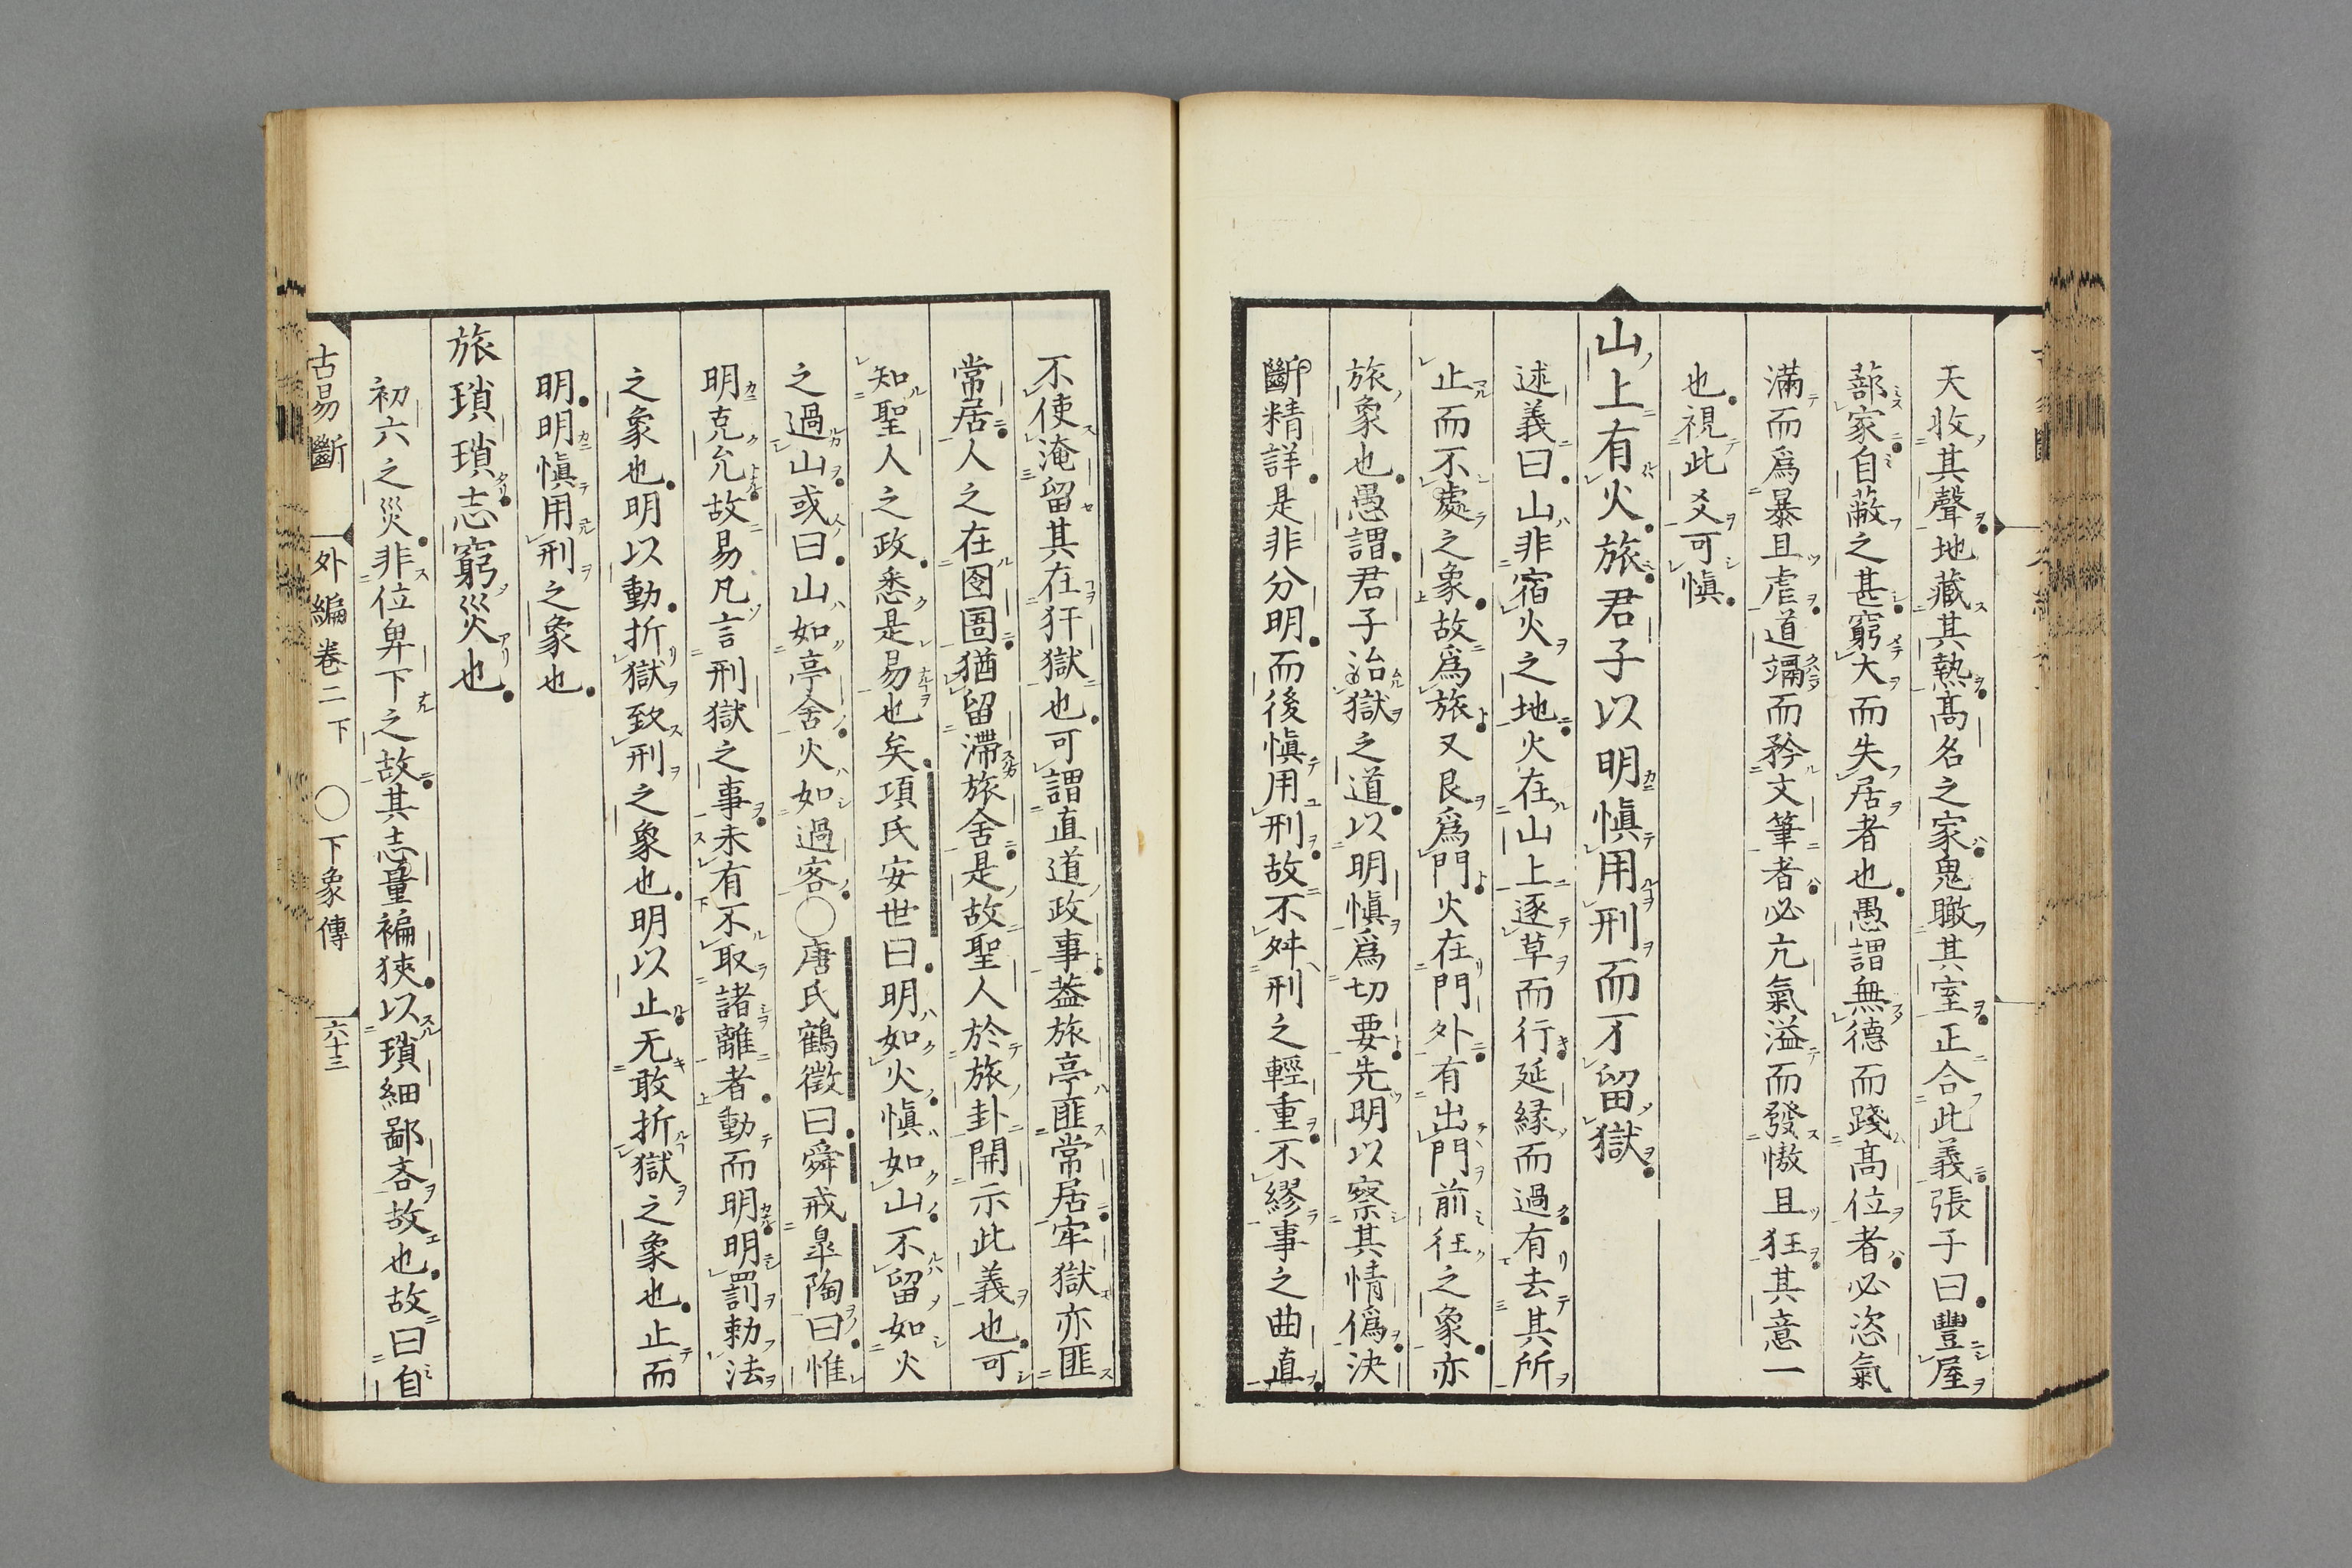 天收其聲地藏其熱高名之家鬼瞰其室正合此義張子曰豐屋
蔀家自蔽之甚窮大而失居者也愚謂無德而踐高位者必恣氣
滿而爲暴且虐道竭而矜文筆者必亢氣溢而發慠且狂其意一
也視此爻可愼
山上有火旅君子以明愼用刑而不留獄
述義曰山非宿火之地火在山上逐草而行延緣而過有去其所
止而不處之象故爲旅又艮爲門火在門外有出門前往之象亦
旅象也愚謂君子治獄之道以明愼爲切要先明以察其情僞決
斷精詳是非分明而後愼用刑故不舛刑之輕重不繆事之曲直
不使淹留其在犴獄也可謂直道政事葢旅亭匪常居牢獄亦匪
常居人之在囹圄猶留滯旅舍是故聖人於旅卦開示此義也可
知聖人之政悉是易也矣項氏安世曰明如火愼如山不留如火
之過山或曰山如亭舍火如過客〇唐氏鶴徵曰舜戒皐陶曰惟
明克允故易凡言刑獄之事未有不取諸離者動而明明罰勅法
之象也明以動折獄致刑之象也明以止无敢折獄之象也止而
明明愼用刑之象也
旅瑣瑣志窮災也
初六之災非位卑下之故其志量褊狹以瑣細鄙吝故也故曰自
古易斷　外編卷二下　〇下象傳　六十三